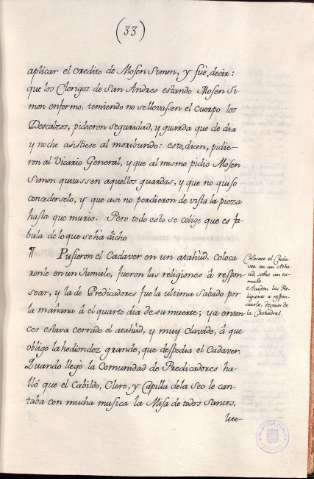 (33)
aplicar el credito de Mosen Simon, y fue, decir:
que los Clerigos de San Andres estando Mosen Si-
mon enfermo, temiendo no se llevasen el cuerpo los
Descalzos, pidieron seguridad, y guarda que de dia
y noche asistiese al moribundo: este, dicen, pidie-
ron al Vicario General, y que al mismo pidió Mosen
Simon quitassen aquellos guardas, y que no quiso
concederselo, y que asi no perdieron de vista la pieza
hasta que murio. Pero todo esto se colige que es fa-
bula de lo que se há dicho
¶ Pusieron el Cadaver en un atahúd, coloca-
ronle en un tumulo, fueron las religiones á respon-
sear, y la de Predicadores fue la ultima Sabado por
la mañana á el quarto dia de su muerte; ya enton-
ces estava cerrado el atahúd, y muy clavado, á que
obligó la hediondez grande, que despedia el Cadaver.
Quando llegó la Comunidad de Predicadores ha-
lló que el Cabildo, Clero, y Capilla de la Seo le can-
taba con mucha musica la Misa de todos Santos,
Colocase el Cada-
ver en un atha-
úd sobre un tu-
mulo
Asisten las Re-
ligiones a respon-
searle, despues de
la Cathedral